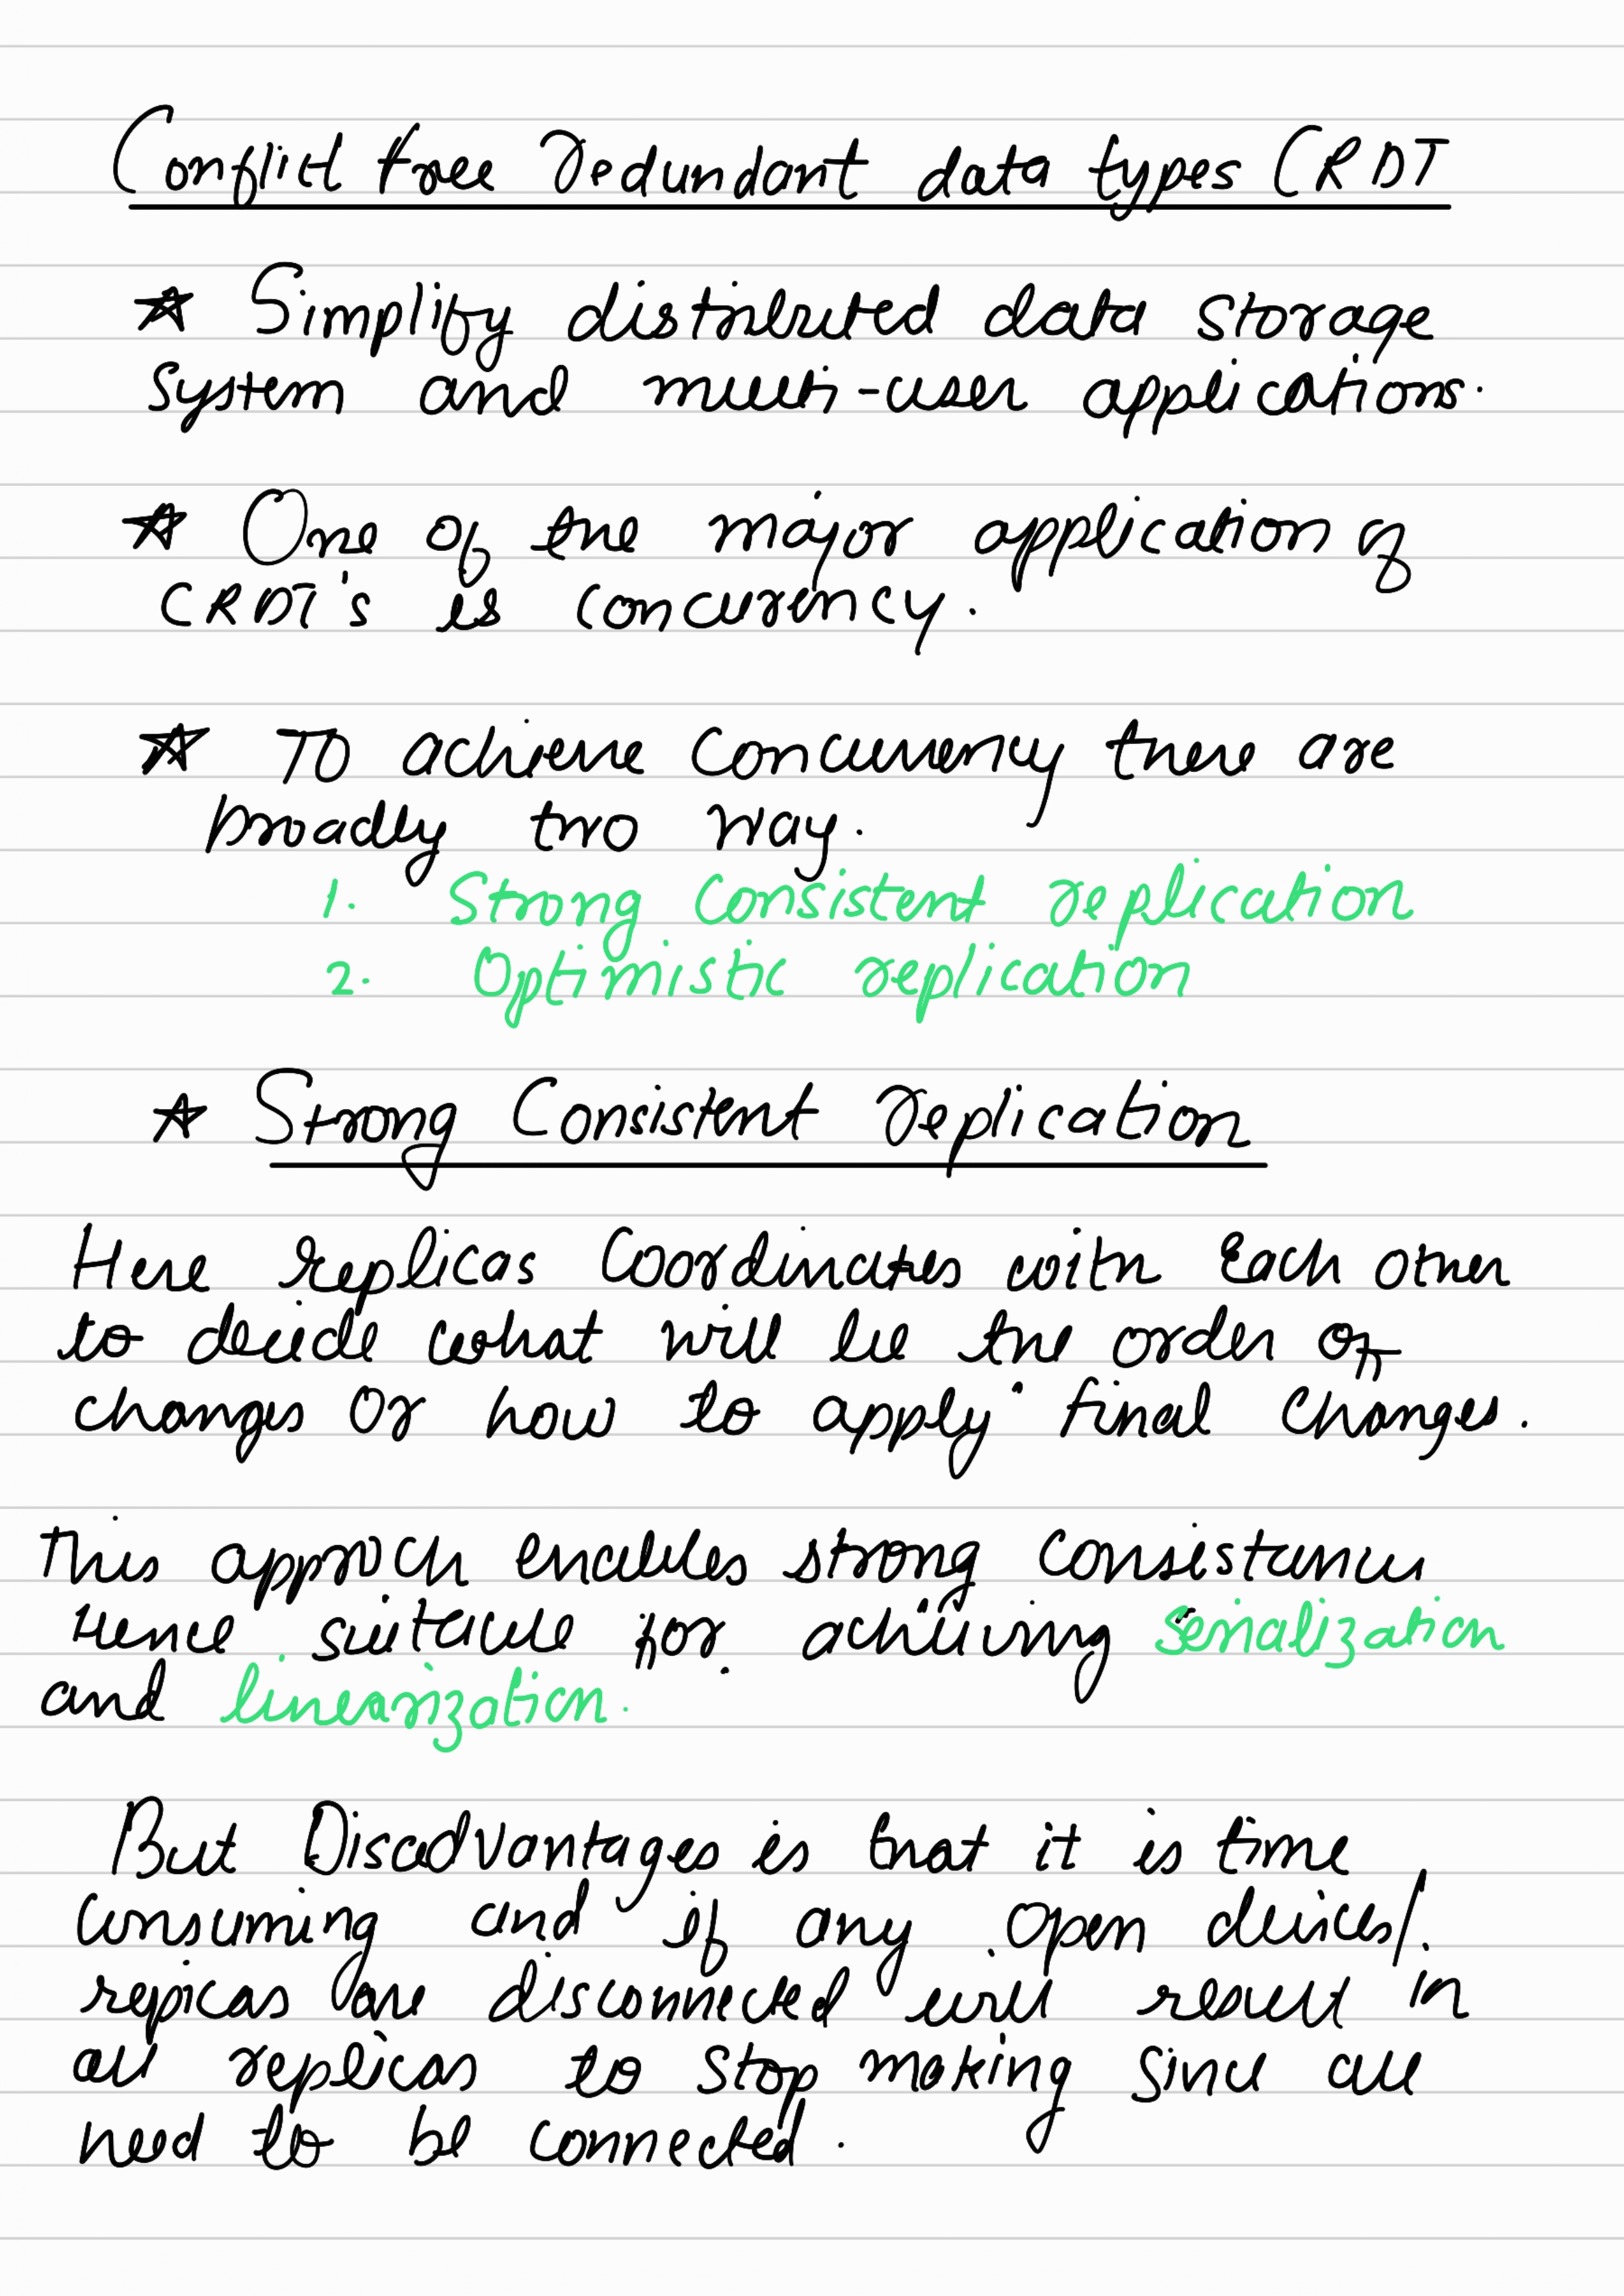 Conflict free redundant data types CRDT
★ Simplify distributed data storage
system and multi-user applications.
★ One of the major application of
CRDT's is concurency.
★ To achieve concurrency there are
broadly two way.
1. Strong Consistent replication
2. Optimistic replication
★ Strong Consistent replication
Here replicas Coordinates with Each other
to decide what will be the order of
changes Or how to apply final changes.
This approch enables strong
hence suitable for achieving serialization
and linearization.
But Disadvantages is that it is time
consuming and if any open devices/
repicas are disconnected will result in
all replicas to stop making since all
need to be connected.